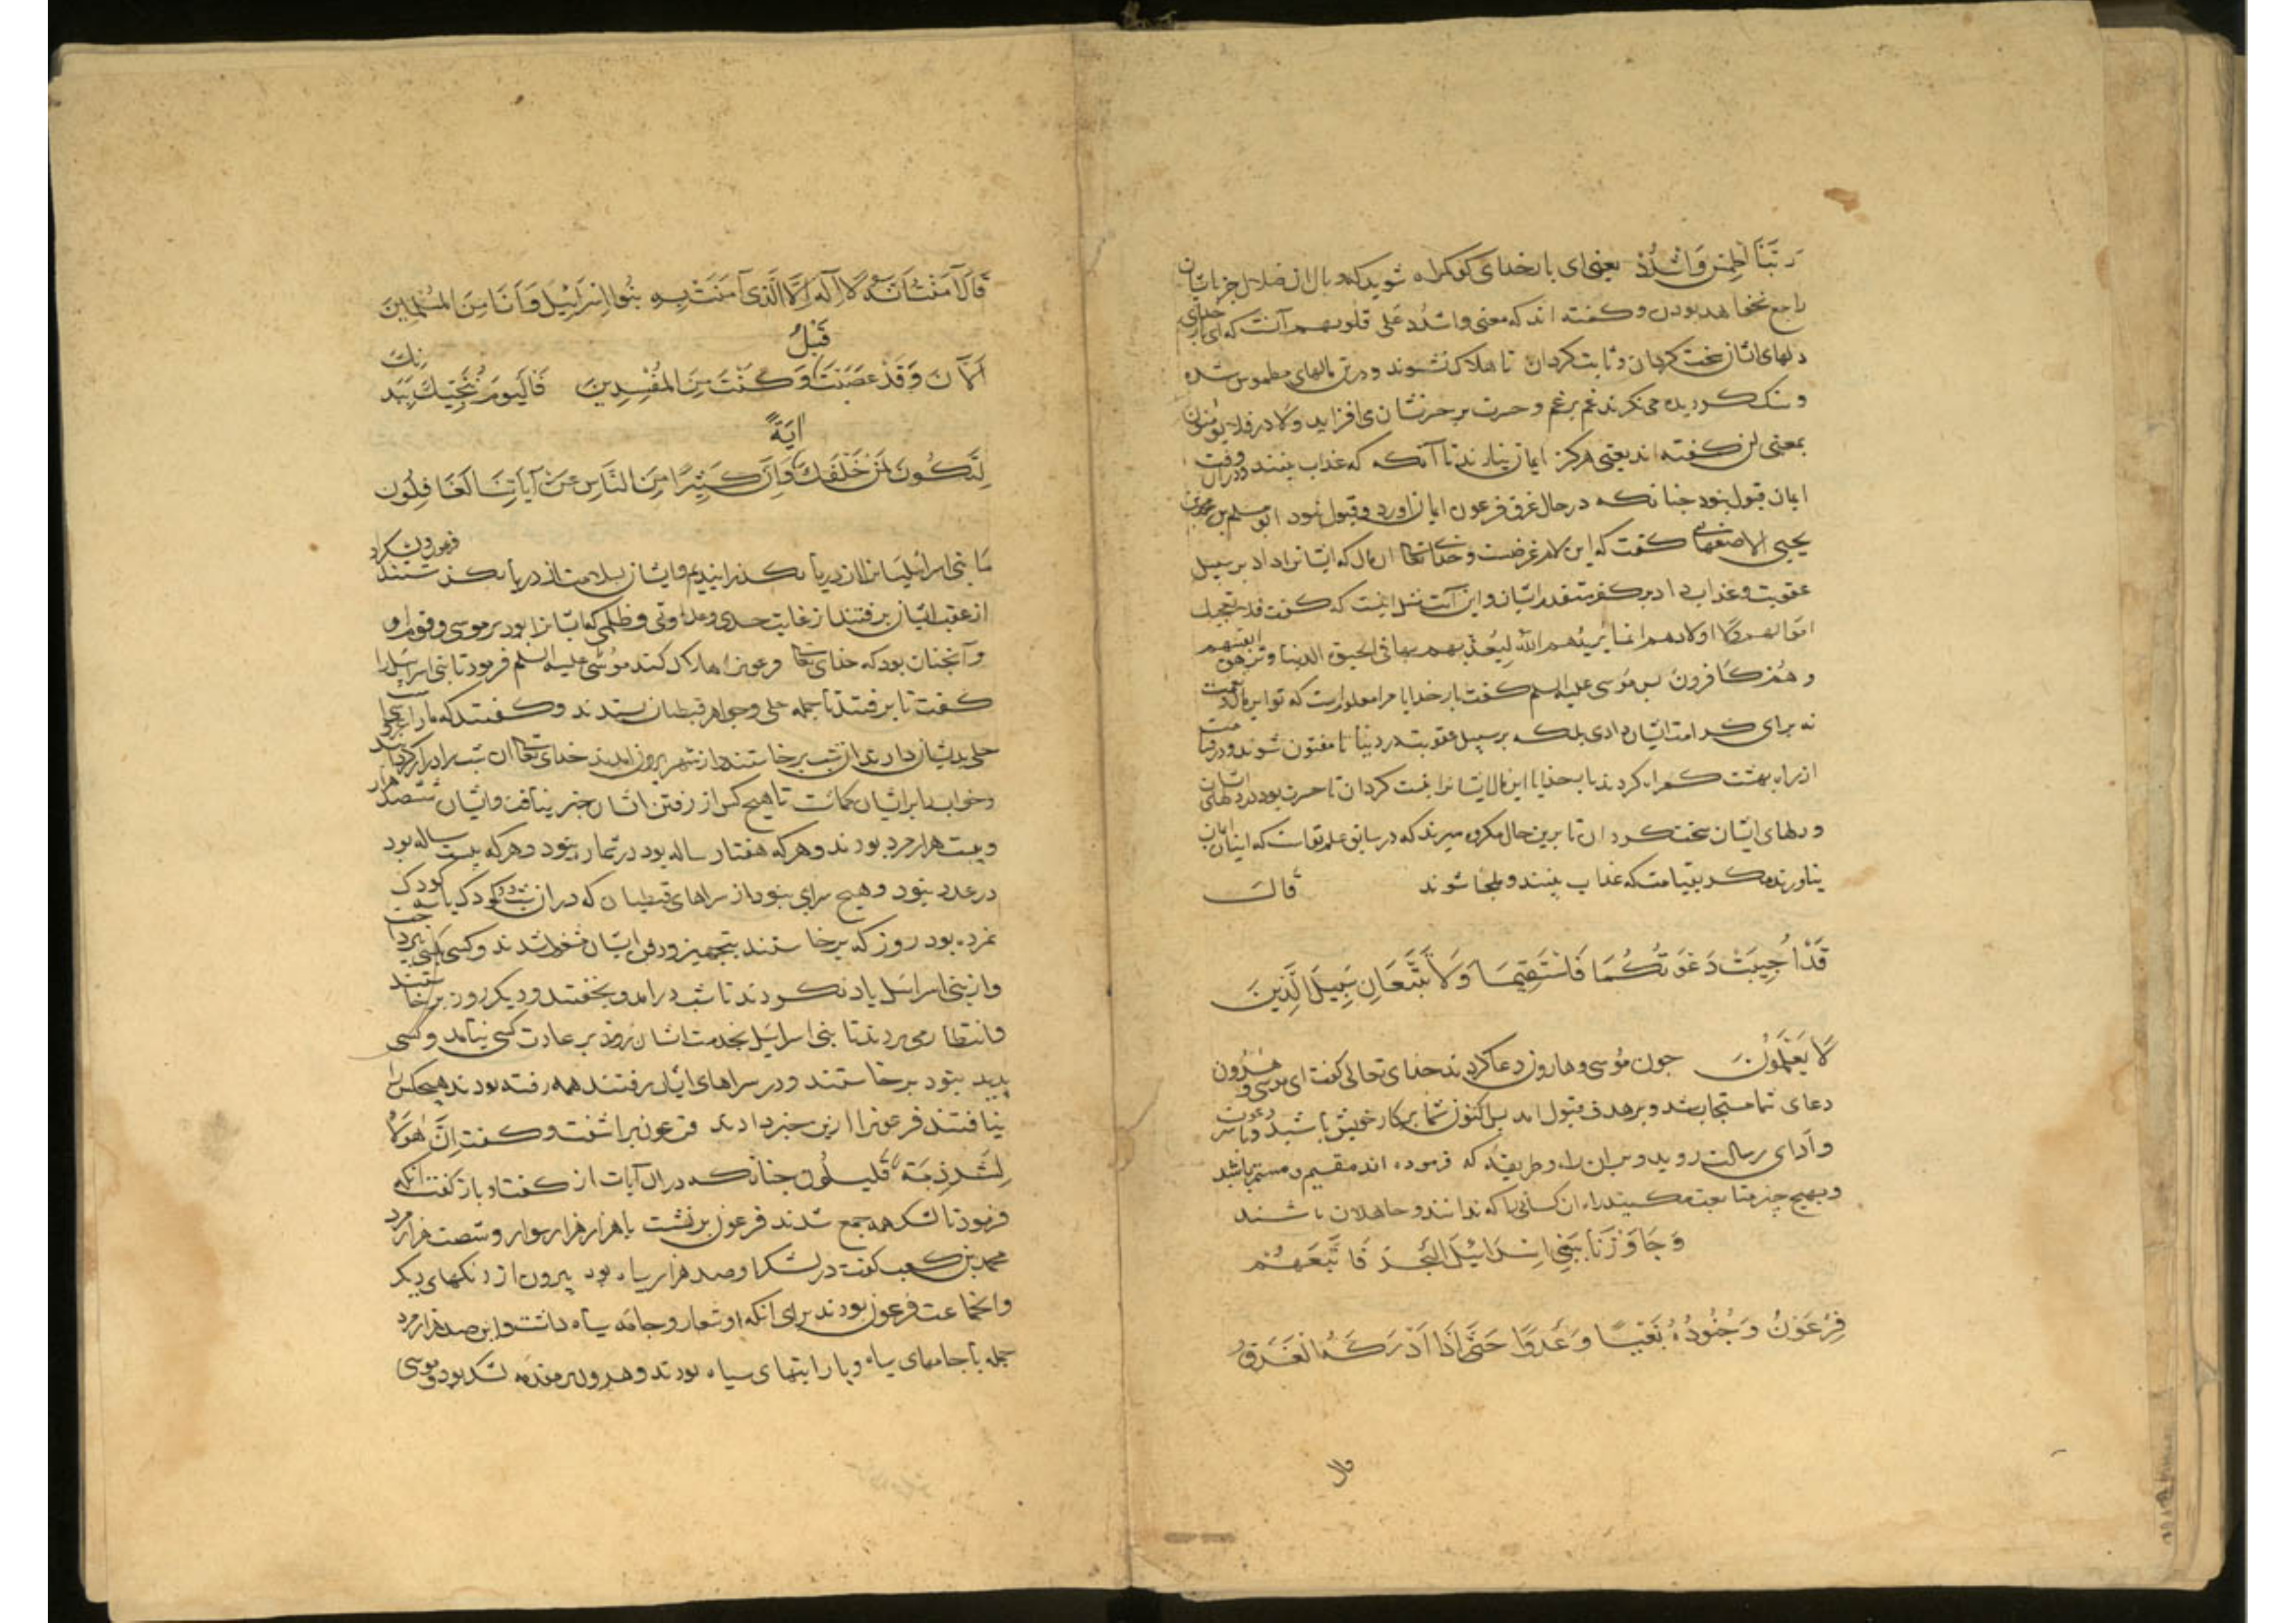 ربنا لطمس واشدد یعنی ای بار خدای کو کمراه شوید که وبال ان ضلال جز باشان
راجع نخواهد بودن و کفته اند که معنی واشدد علی قلوبهم آنست که ای بار خدای
دلهای اشان سخت کردان و ثابت کردان تا هلاک نشوند و درین مالهای مطموس شده
و سنک کردیده می نکرند غم بر غم و حسرت بر حسرتشان می افزاید ولا در فلا یومنون
بمعنی لن کفته اند یعنی هرکز ایمان نیارند تا آنکه که عذاب بینند و دران وقت
ایمان قبول نبود جنانکه در حال غرق فرعون ایمان اورد و قبول نبود ابو مسلم بن محمد بن
یحیی الاصفهانی کفت که این لام غرضست و خدای تعالی ان مال که ایشانرا داد بر سبیل
عقوبت و عذاب داد بر کفر متقدم ایشان و این آیت مثل اینست که کفت فلا تعجبک
اموالهم ولا اولادهم انما یرید هم الله لیعذبهم بها فی الحیوة الدنیا وتزهق انفسهم
وهم کافرون بس موسی علیه السلم کفت بار خدایا مرا معلومست که تو این مال و نعمت
نه برای کرامت ایشان دادی بلکه بر سبیل عقوبت در دنیا تا مفتون شوند و در قیامت
از راه بهشت کمراه کردند بار خدایا این مال ایشانرا نیست کردان تا حسرت بود در دلهای ایشان
و دلهای ایشان سخت کردان تا برین حال مکروه میرند که در سابق علم تو است که اینان ایمان
نیاورند مکر بقیامت که عذاب بینند و ملجا شوند قال
قَدْ اُجِیبَتْ دَعْوَتُکُمَا فَاسْتَقِیمَا وَلَا تَتَّبِعَانِ سَبِیلَ الَّذِینَ
لَا یَعْلَمُونَ جون موسی و هارون دعا کردند خدای تعالی کفت ای موسی و هرون
دعای شما مستجاب شد و بر هدف قبول امد بس اکنون شما بر کار خویش باشید و با سر دعوت
و اَدای رسالت روید و بران راه و طریقه که فرموده اند مقیم و مستمر باشید
و بهیج جیز متابعت مکنید راه ان کسانی را که ندانند و جاهلان باشند
وَجَاوَزْنَا بِبَنِی اِسْرَائِیلَ الْبَحْرَ فَاَتْبَعَهُمْ
فِرْعَوْنُ وَجُنُودُهُ بَغْیًا وَعَدْوًا حَتَّی اِذَا اَدْرَکَهُ الْغَرَقُ
قال
قَالَ آمَنْتُ اَنَّهُ لَا اِلَهَ اِلَّا الَّذِی آمَنَتْ بِهِ بَنُوا اِسْرَائِیلَ وَاَنَا مِنَ الْمُسْلِمِینَ
اَلْآنَ وَقَدْ عَصَیْتَ قَبْلُ وَکُنْتَ مِنَ الْمُفْسِدِینَ فَالْیَوْمَ نُنَجِّیکَ بِبَدَنِکَ
لِتَکُونَ لِمَنْ خَلْفَکَ اٰیَةً وَاِنَّ کَثِیرًا مِنَ النَّاسِ عَنْ آیَاتِنَا لَغَافِلُونَ
ما بنی اسرائیلیانرا از دریا بکذرانیدیم و ایشان بسلامت از دریا بکذشتند فرعون و لشکر او
از عقب ایشان برفتند از غایت حسد و عداوتی و ظلمی که ایشانرا بود بر موسی و قوم او
و آنجنان بود که خدای تعالی فرعونرا هلاک کند موسی علیه السلم فرمود تا بنی اسرایل را
کفت تا برفتند تا جمله حلی و جواهر قبطیان بستدند و کفتند که ما را عروسی
حلی بدیشان دادند از شب برخاستند و از شهر بیرون امدند خدای تعالی ان شب را دراز کردانید
و خواب را بر ایشان کماشت تا هیج کس از رفتن اشان خبر نیافت و ایشان ششصد هزار
و بیست هزار مرد بودند و هرکه هفتاد ساله بود در شمار نبود و هرکه بیست ساله بود
در عدد نبود و هیج سرای نبود از سراهای قبطیان که دران شب کودکی یا دو کودک
نمرده بود روز که برخاستند بتجهیز و دفن ایشان مشغول شدند و کسی کسی نپرداخت
و از بنی اسرایل یاد نکردند تا شب درامد و بخفتند و دیکر روز برخاستند
و انتظار می بردند تا بنی اسرایل بخدمت اشان روند بر عادت کسی نیامد و کسی
پدید نبود برخاستند و در سراهای ایشان رفتند همه رفته بودند هیجکس را
نیافتند فرعونرا ازین خبر دادند فرعون براشفت و کفت اِنَّ هؤلاء
لَشِرْذِمَةٌ قَلِیلُون جنانکه در ان آیات از کفت او باز کفت انکه
فرمود تا لشکر همه جمع شدند فرعون برنشست با هزار هزار سوار و شصت هزار مرد
محمد بن کعب کفت در لشکر او صد هزار سیاه بود بیرون از رنکهای دیکر
و انجماعت فرعون بودند برای انکه او شعار و جامه سیاه داشت و این صد هزار مرد
جمله با جامهای سیاه و با رایتهای سیاه بودند و هرون بر مقدمه لشکر بود و موسی